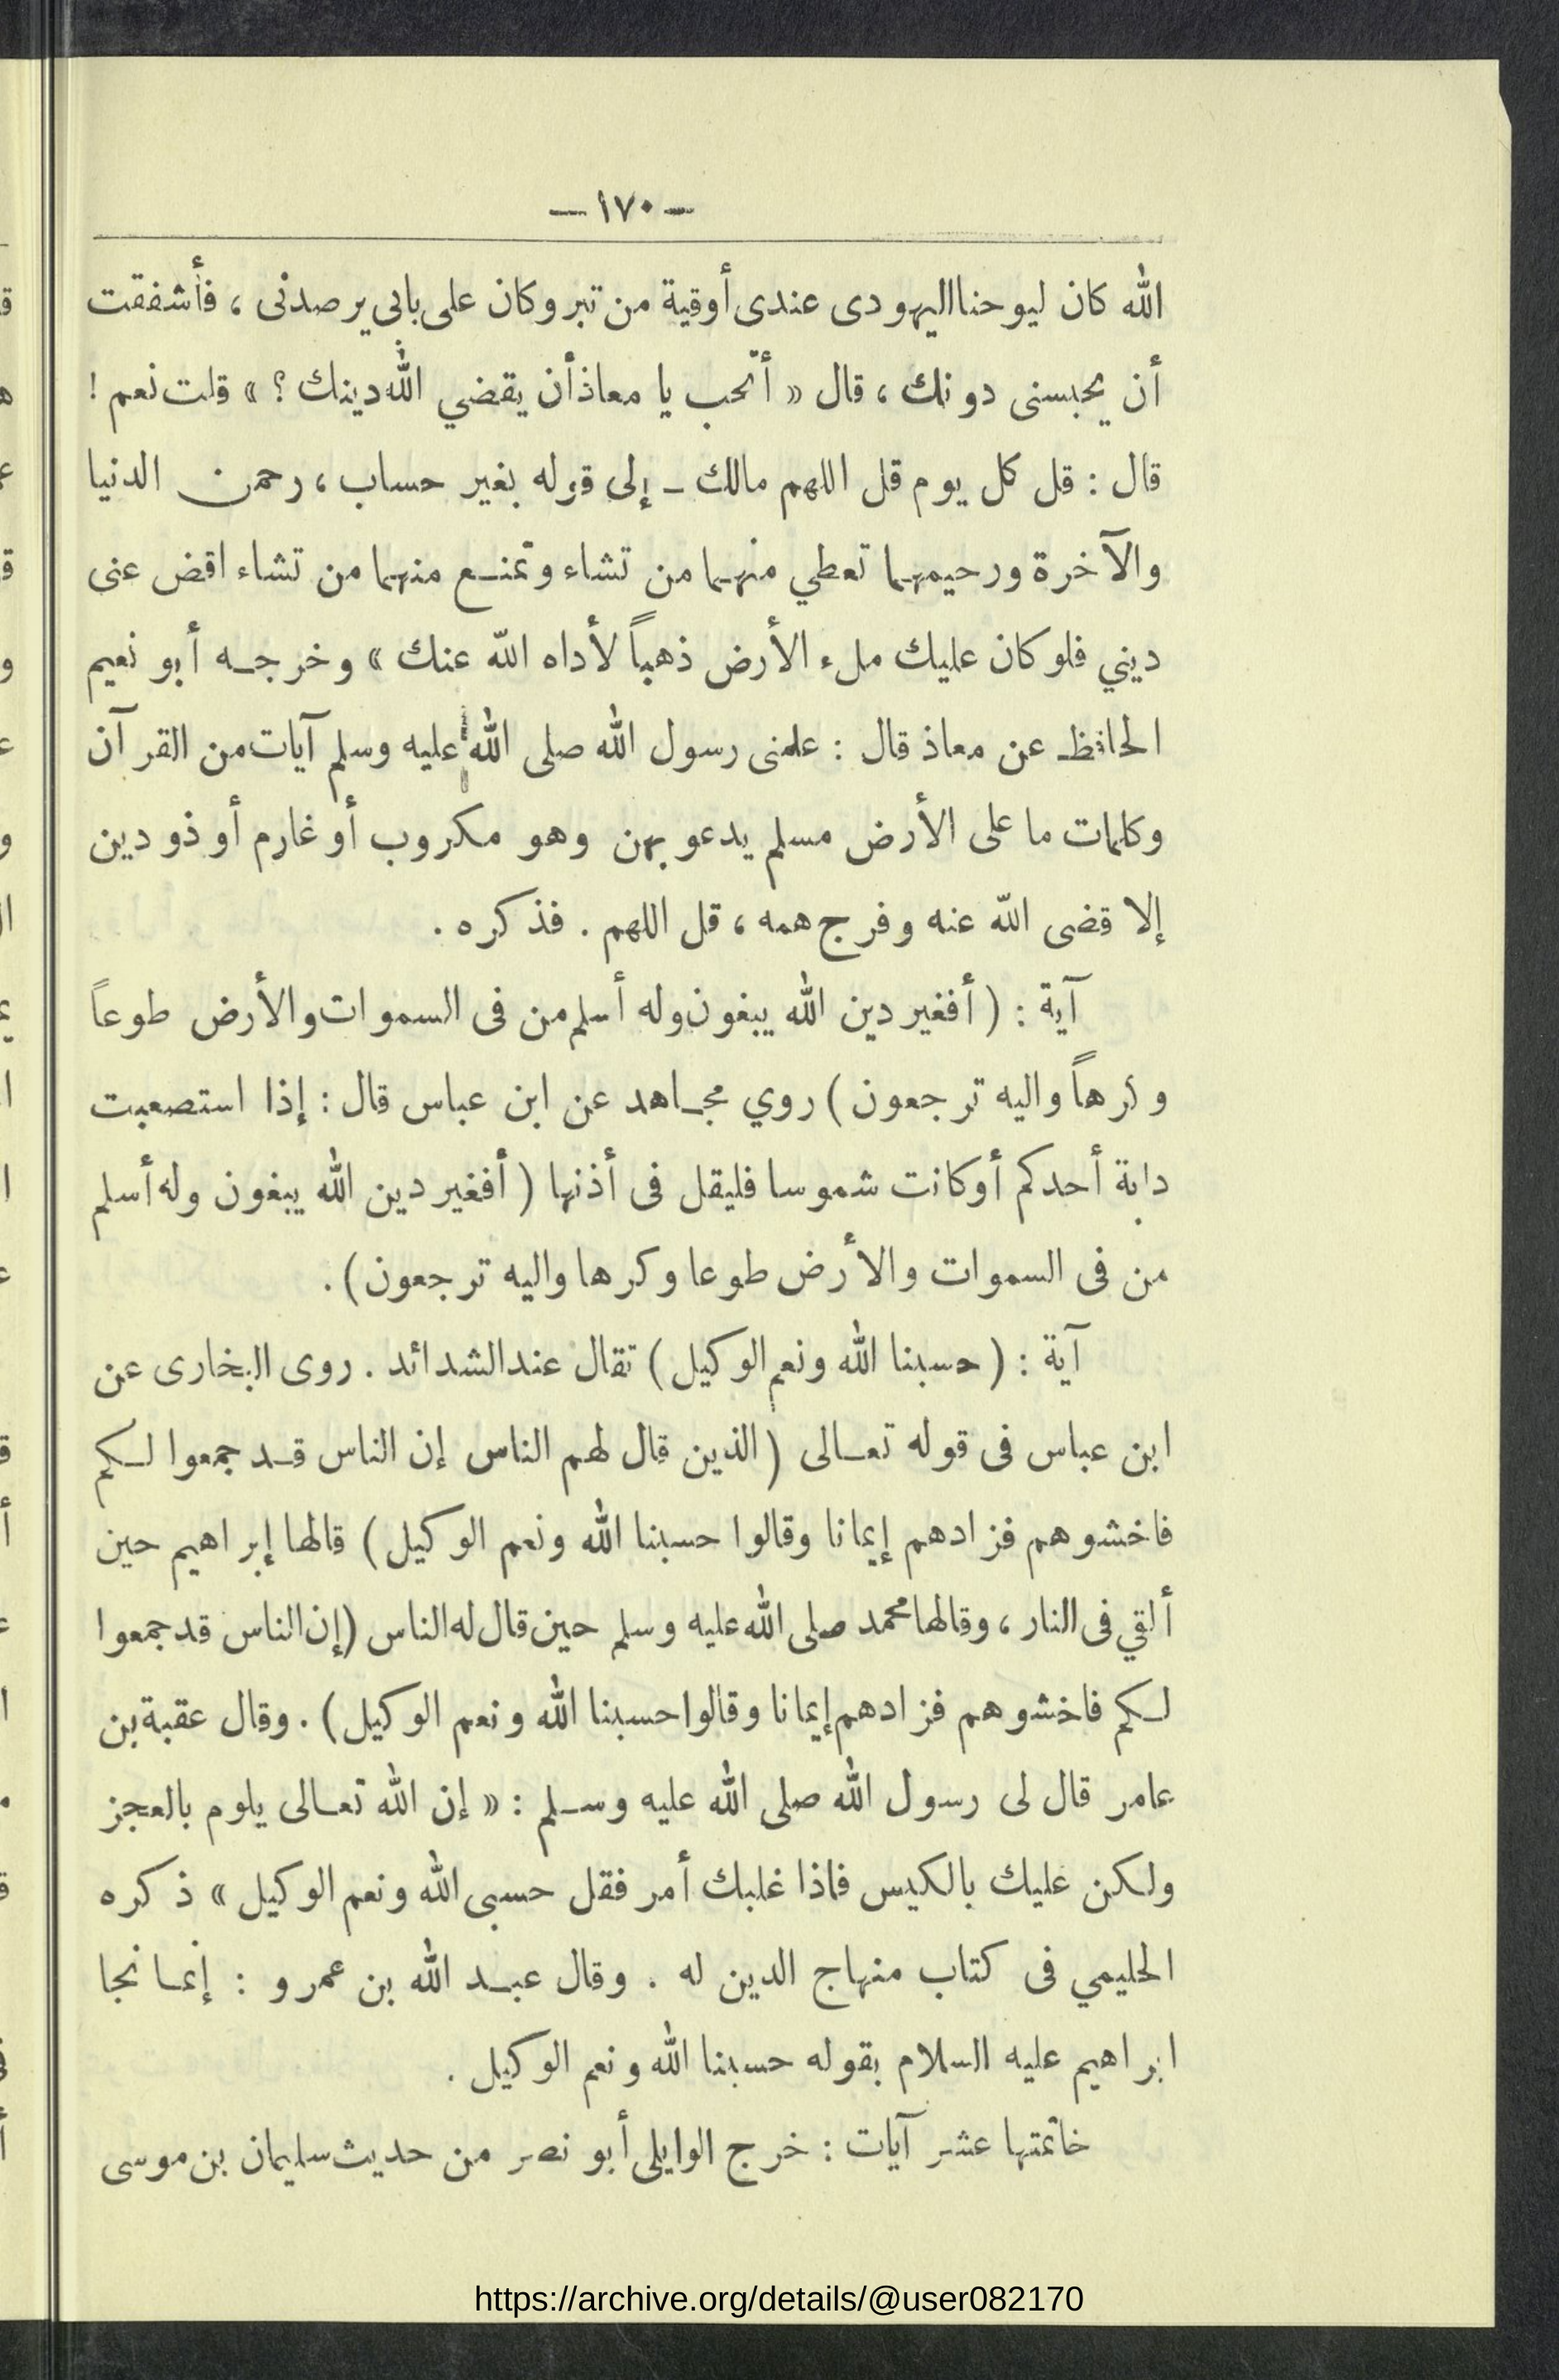 — ١٧٠ —
الله كان ليوحنا اليهودى عندى أوقية من تبر وكان على بابى يرصدنى ، فأشفقت
أن يحبسنى دونك ، قال « أتحب يا معاذ أن يقضي الله دينك ؟ » قلت نعم !
قال : قل كل يوم قل اللهم مالك ــ إلى قوله بغير حساب ، رحمن الدنيا
والآخرة ورحيمهما تعطي منهما من تشاء وتمنع منهما من تشاء اقض عنى
ديني فلو كان عليك ملء الأرض ذهباً لأداه الله عنك » وخرجه أبو نعيم
الحافظ عن معاذ قال : علمنى رسول الله صلى الله عليه وسلم آيات من القرآن
وكلمات ما على الأرض مسلم يدعو بهن وهو مكروب أو غارم أو ذو دين
إلا قضى الله عنه وفرج همه ، قل اللهم . فذكره .
آية : ( أفغير دين الله يبغون وله أسلم من فى السموات والأرض طوعاً
وكرهاً واليه ترجعون ) روي مجاهد عن ابن عباس قال : إذا استصعبت
دابة أحدكم أو كانت شموسا فليقل فى أذنها ( أفغير دين الله يبغون وله أسلم
من فى السموات والأرض طوعا وكرها واليه ترجعون ) .
آية : ( حسبنا الله ونعم الوكيل ) تقال عند الشدائد . روى البخارى عن
ابن عباس فى قوله تعالى ( الذين قال لهم الناس إن الناس قد جمعوا لكم
فاخشوهم فزادهم إيمانا وقالوا حسبنا الله ونعم الوكيل ) قالها إبراهيم حين
ألقي فى النار ، وقالها محمد صلى الله عليه وسلم حين قال له الناس ( إن الناس قد جمعوا
لكم فاخشوهم فزادهم إيمانا وقالوا حسبنا الله ونعم الوكيل ) . وقال عقبة بن
عامر قال لى رسول الله صلى الله عليه وسلم : « إن الله تعالى يلوم بالعجز
ولكن عليك بالكيس فاذا غلبك أمر فقل حسبى الله ونعم الوكيل » ذكره
الحليمي فى كتاب منهاج الدين له . وقال عبد الله بن عمرو : إنما نجا
ابراهيم عليه السلام بقوله حسبنا الله ونعم الوكيل .
خاتمتها عشر آيات : خرج الوايلى أبو نصر من حديث سليمان بن موسى
https://archive.org/details/@user082170